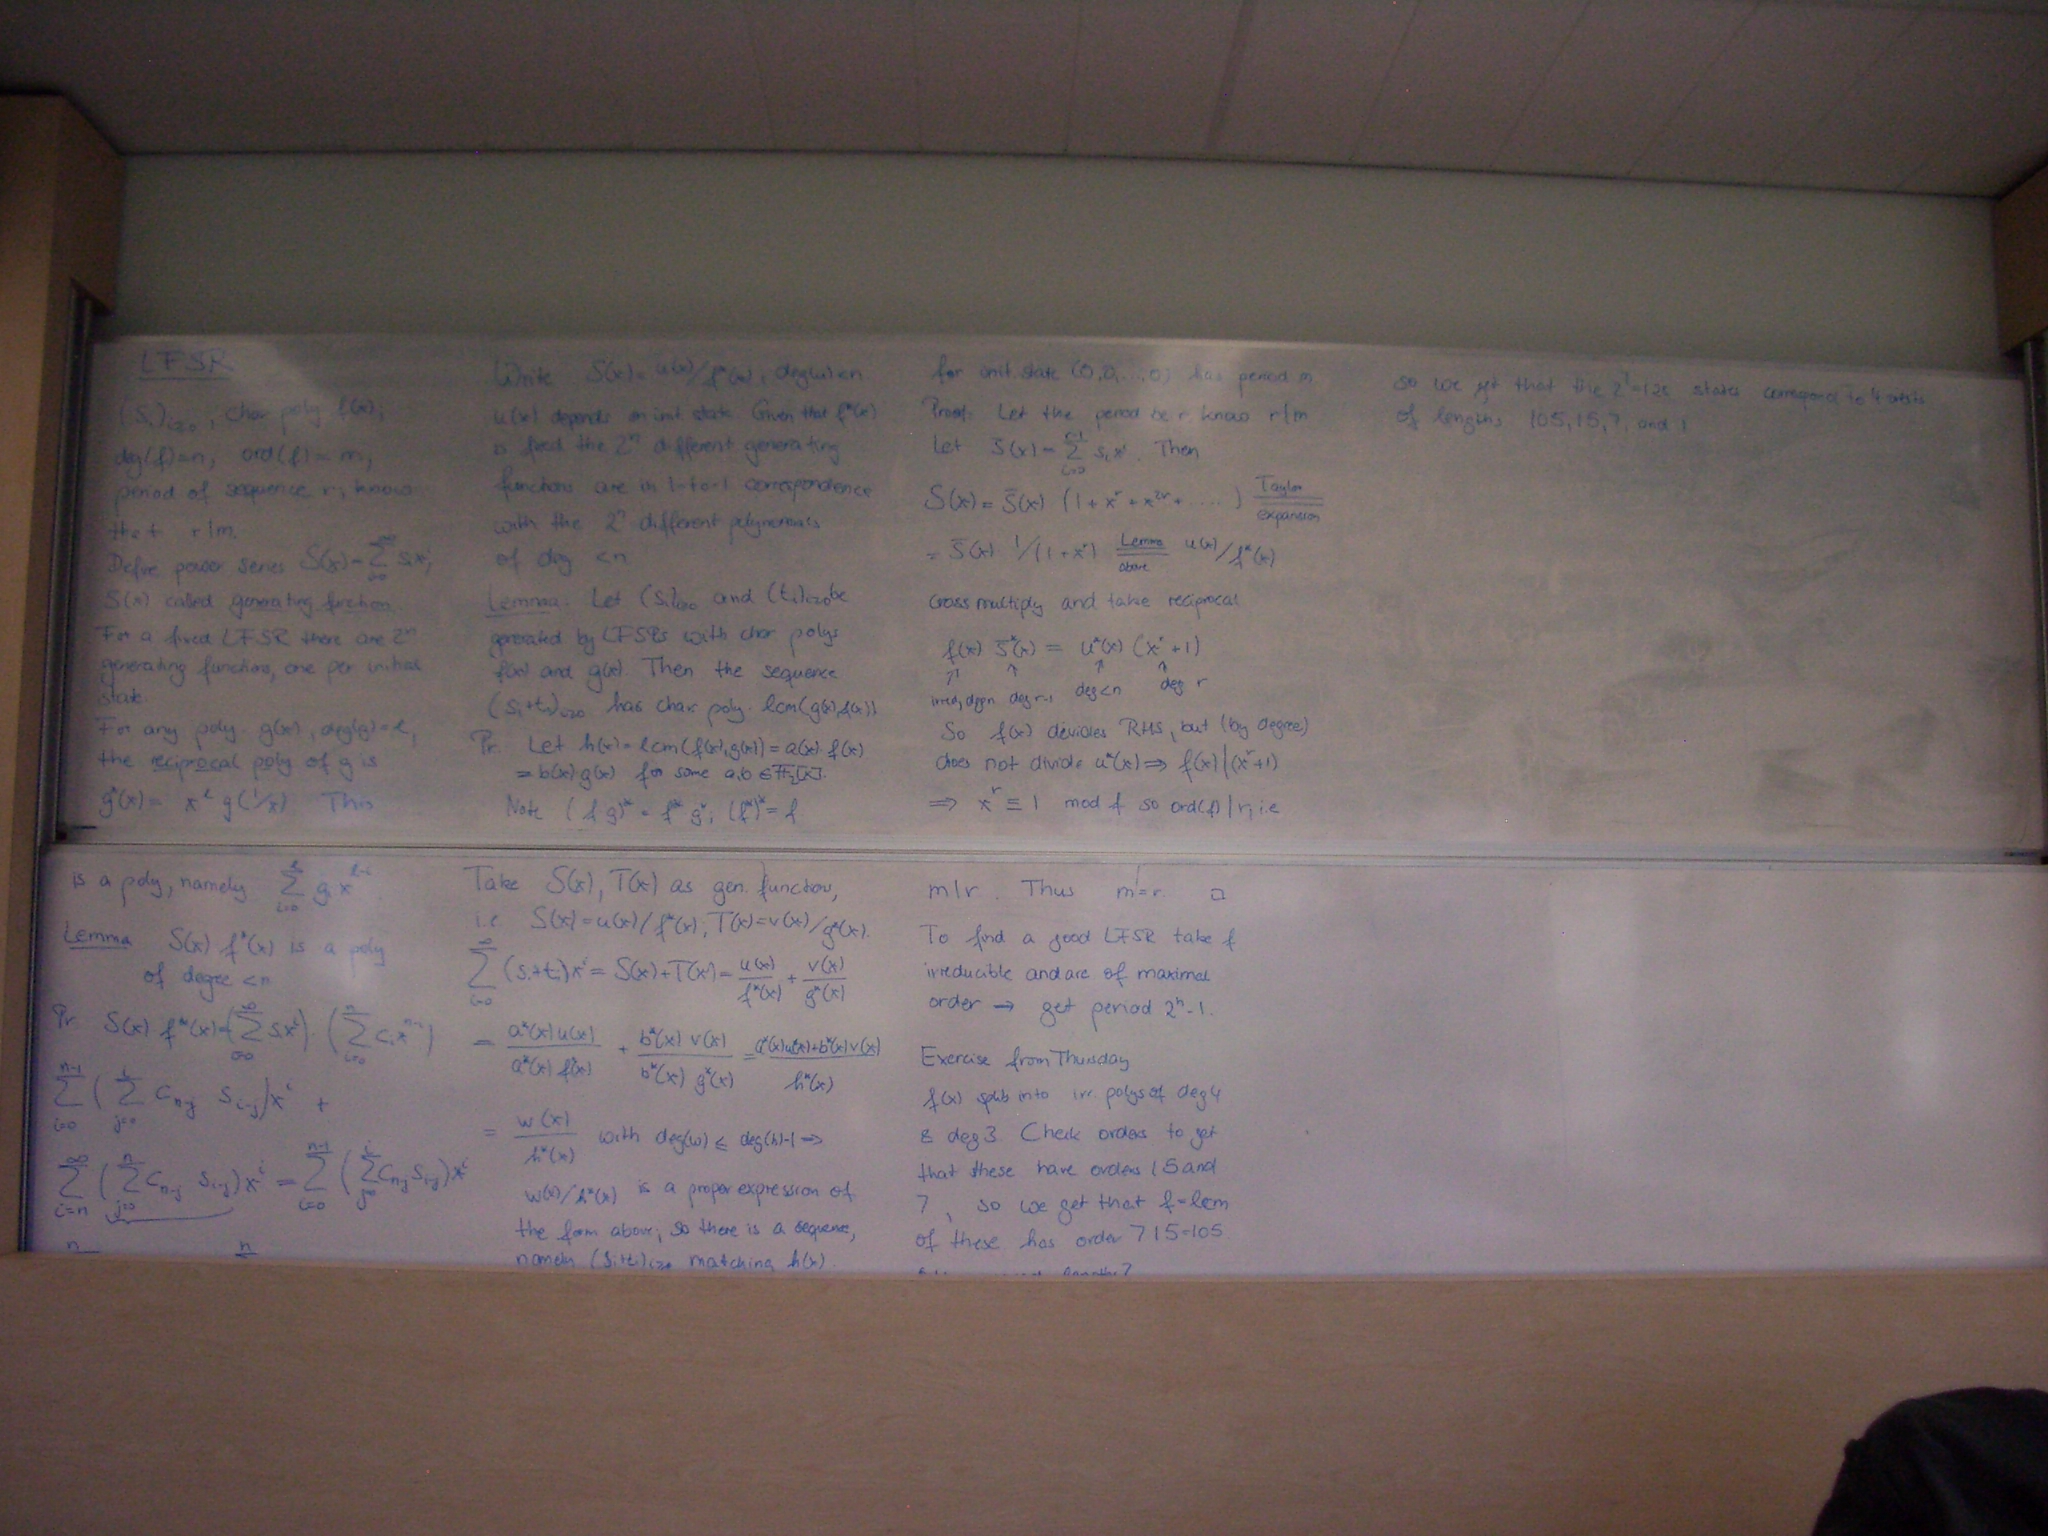 LFSR
(s_i)_{i≥0}, char poly f(x);
deg(f)=n, ord(f)=m,
period of sequence r, know
that r|m.
Define power series S(x)=∑_{i=0}^{∞} s_i x^i,
S(x) called generating function.
For a fixed LFSR there are 2^n
generating functions, one per initial
state.
For any poly. g(x), deg(g)=l,
the reciprocal poly of g is
g*(x)= x^l g(1/x) This
is a poly, namely ∑_{i=0}^{l} g_i x^{l-i}
Lemma S(x) f*(x) is a poly
of degree <n
Pr S(x) f*(x)=(∑_{i=0}^{∞} s_i x^i) (∑_{i=0}^{n} c_i x^{n-i})
∑_{i=0}^{n-1} (∑_{j=0}^{i} c_{n-j} s_{i-j}) x^i +
∑_{i=n}^{∞} (∑_{j=0}^{n} c_{n-j} s_{i-j}) x^i = ∑_{i=0}^{n-1} (∑_{j=0}^{i} c_{n-j} s_{i-j}) x^i
Write S(x)=u(x)/f*(x), deg(u)<n
u(x) depends on init state. Given that f*(x)
is fixed the 2^n different generating
functions are in 1-to-1 correspondence
with the 2^n different polynomials
of deg <n
Lemma. Let (s_i)_{i≥0} and (t_i)_{i≥0} be
generated by LFSRs with char polys
f(x) and g(x). Then the sequence
(s_i+t_i)_{i≥0} has char poly. lcm(g(x),f(x))
Pr. Let h(x)=lcm(f(x),g(x))=a(x)·f(x)
=b(x)·g(x) for some a,b∈𝔽_2[x].
Note (f g)* = f* g*; (f*)*=f
Take S(x), T(x) as gen. function,
i.e. S(x)=u(x)/f*(x), T(x)=v(x)/g*(x).
∑_{i=0}^{∞} (s_i+t_i)x^i = S(x)+T(x) = u(x)/f*(x) + v(x)/g*(x)
= a*(x)u(x)/a*(x) f*(x) + b*(x) v(x)/b*(x) g*(x) = a*(x)u(x)+b*(x)v(x)/h*(x)
= w(x)/h*(x) with deg(w) ≤ deg(h)-1 ⇒
w(x)/h*(x) is a proper expression of
the form above, so there is a sequence,
namely (s_i+t_i)_{i≥0} matching h(x).
for init. state (0,0,...,0) has period m
Proof: Let the period be r, know r|m
Let S̄(x)=∑_{i=0}^{r-1} s_i x^i. Then
S(x)=S̄(x) (1+x^r+x^{2r}+....) Taylor expansion
= S̄(x) 1/(1+x^r) Lemma above u(x)/f*(x)
cross multiply and take reciprocal
f(x) S̄*(x) = u*(x) (x^r+1)
irred, deg n deg r-1 deg<n deg r
So f(x) devides RHS, but (by degree)
does not divide u*(x) ⇒ f(x)|(x^r+1)
⇒ x^r ≡ 1 mod f so ord(f)|r, i.e
m|r. Thus m=r. □
To find a good LFSR take f
irreducible and are of maximal
order → get period 2^n-1.
Exercise from Thursday
f(x) splits into irr. polys of deg 4
& deg 3. Check orders to get
that these have orders 15 and
7, so we get that f=lcm
of these has order 7·15=105.
lengths?
so we get that the 2^7=128 states correspond to 4 orbits
of lengths 105,15,7, and 1